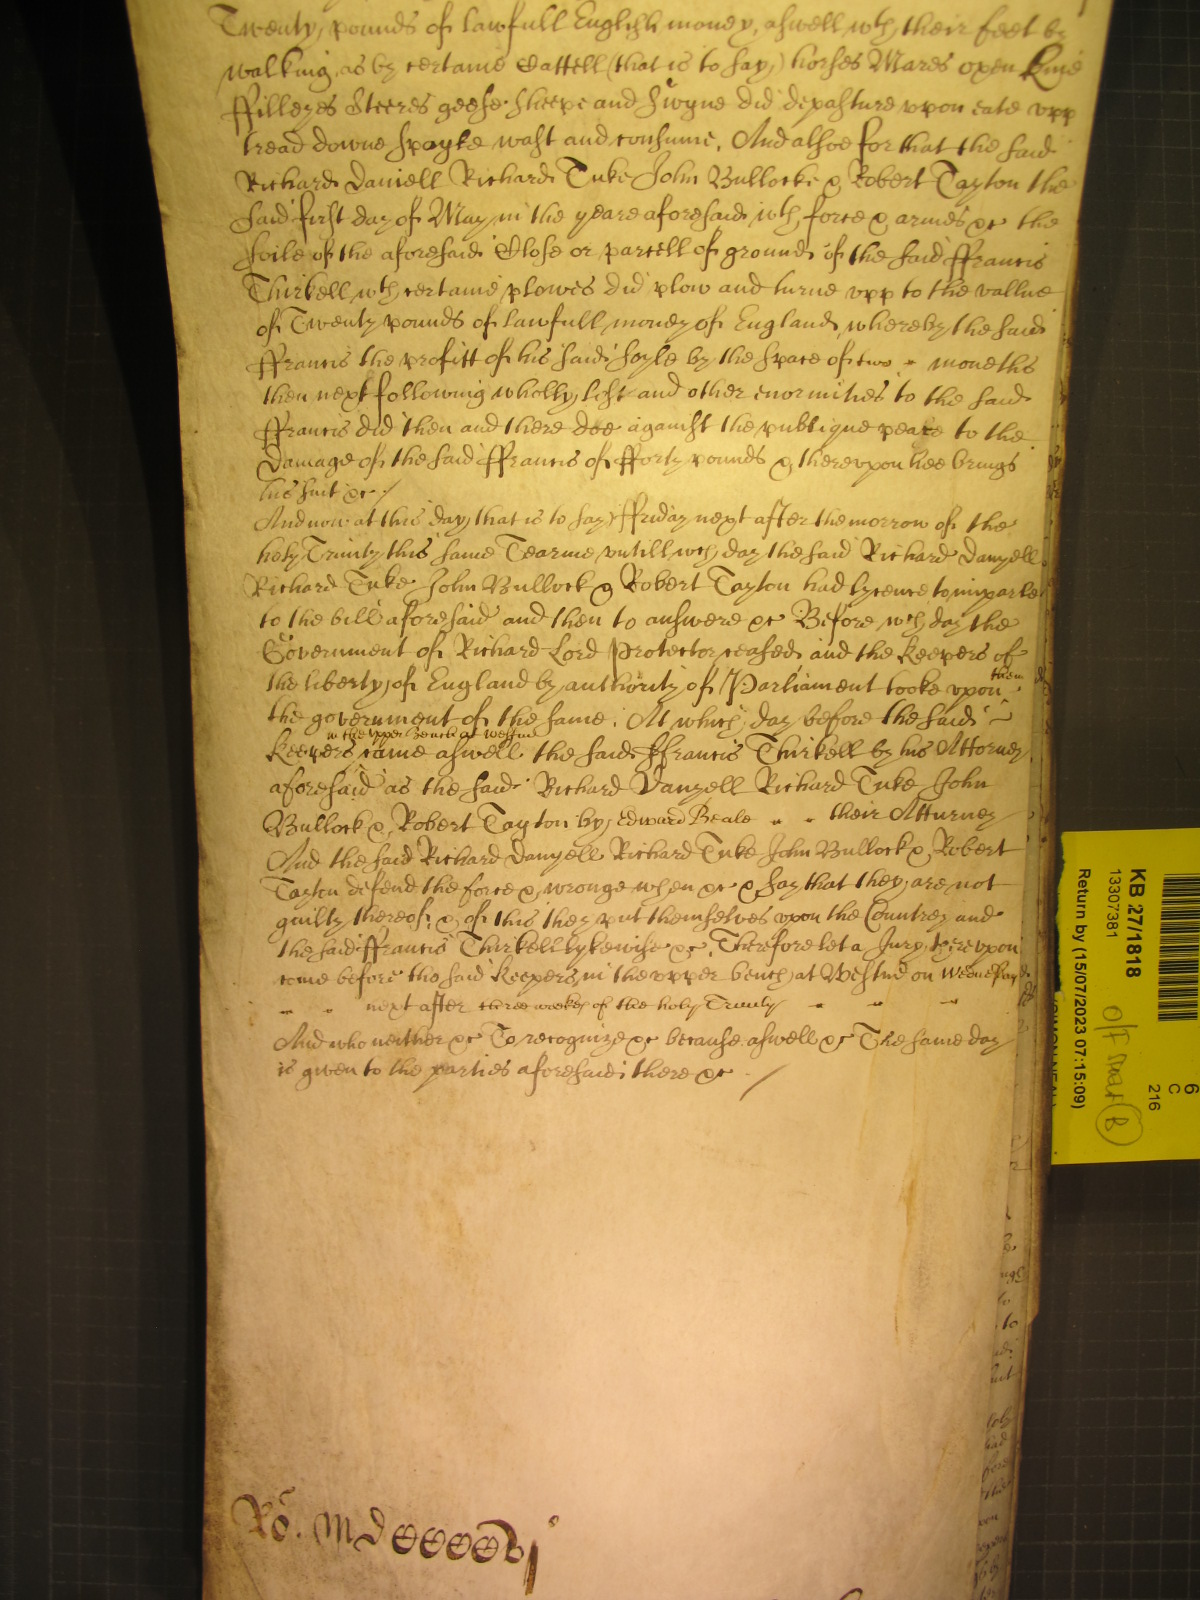 Twenty pounds of lawfull English money, aswell wth their feet by
walking as by certaine Cattell (that is to say) horses Mares oxen Kine
ffilleyes Steeres geese Sheepe and Swyne did depasture vpon eate vpp
tread downe spoyle wast and consume, And alsoe for that the said
Richard Daniell Richard Tuke John Bullocke & Robert Tayton the
said first day of May in the yeare aforesaid wth force & armes &c the
soile of the aforesaid Close or parcell of ground of the said ffrancis
Thirkell wth certaine plowes did plow and turne vpp to the vallue
of Twenty pounds of lawfull money of England whereby the said
ffrancis the profitt of his said soyle by the space of two moneths
then next following wholly lost and other enormities to the said
ffrancis did then and there doe against the publique peace to the
Damage of the said ffrancis of fforty pounds & therevpon hee brings
his suit &c /
And now at this day (that is to say) ffriday next after the morrow of the
holy Trinity this same Tearme vntill wch day the said Richard Danyell
Richard Tuke John Bullock & Robert Tayton had lycence to imparle
to the bill aforesaid and then to answere &c Before wch day the
Government of Richard Lord Protector ceased and the Keepers of
the liberty of England by authority of Parliament tooke vpon them
the government of the same. At which day before the said
in the vpper Bench at Westmr
Keepers came aswell the said ffrancis Thirkell by his Attorney
aforesaid as the said Richard Danyell Richard Tuke John
Bullock & Robert Tayton by Edward Beale their Atturney
And the said Richard Danyell Richard Tuke John Bullock & Robert
Tayton defend the force & wronge when &c & say that they are not
guilty thereof & of this they put themselves vpon the Countrey and
the said ffrancis Thirkell lykewise &c, Therefore let a Jury therevpon
come before the said Keepers in the vpper bench at Westmr on Wednesday
next after three weekes of the holy Trinity
And who neither &c To recognize &c because aswell &c The same day
is given to the parties aforesaid there &c /
Ro. MDCCCCVj
KB 27/1818
13307381
Return by (15/07/2023 07:15:09)
6
C
216
off mat B